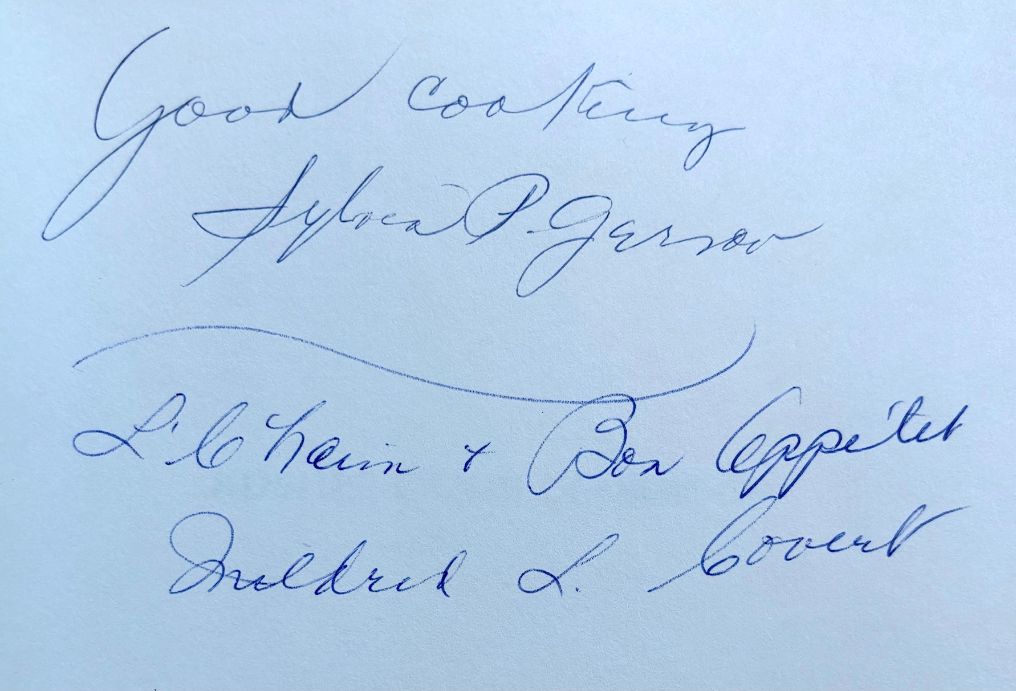 Good cooking
Sylvia P. Gerson
L'Chaim + Bon Appétit
Mildred L. Covert